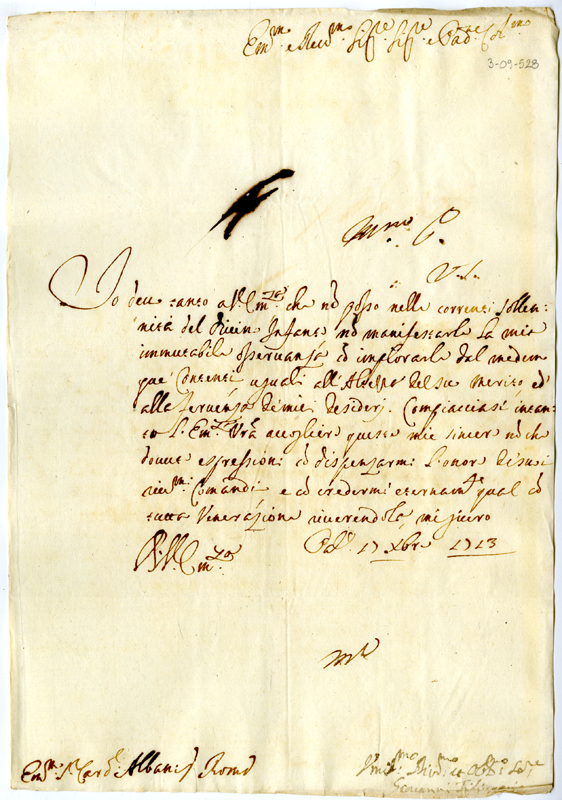 Em.mo e Rev.mo Sig.re Sig.re e Pad.ne Col.mo
3-09-528
Io deu tanto a V. Em.za che nõ posso nelle correnti sollen:
nità del Divin Infante nõ manifestarle la mia
immutabile osservanza cõ implorarle dal medem
que' Contenti uguali all' del suo merito ed
alla fervenza de' miei desiderj. Compiacciasi intan
to l'Em.za Vr̃a accogliere queste mie sincere nõ che
dovute espressioni cõ dispensarmi l'onor de' suoi
riv.mi Comandi e cõ credermi eternam.te qual cõ
tutta Venerazione riverendola mi sicuro
Di V. Em.za
Pad. 17 Xbre 1713
Em.mo S.r Card.l Albani Roma
Um.mo Div.mo et Obb.mo Ser.re
Giovanni